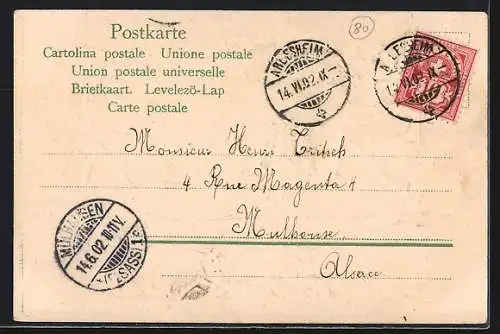 Postkarte
Cartolina postale Unione postale
Union postale universelle
Briefkaart. Levelező-Lap
Carte postale
80
ARLESHEIM
14.VI.02.IX
ARLESHEIM
Monsieur Henri
4 Rue Magenta 4
Mulhouse
Alsace
MÜLHAUSEN
14.6.02.10-11V.
(ELSASS) 1